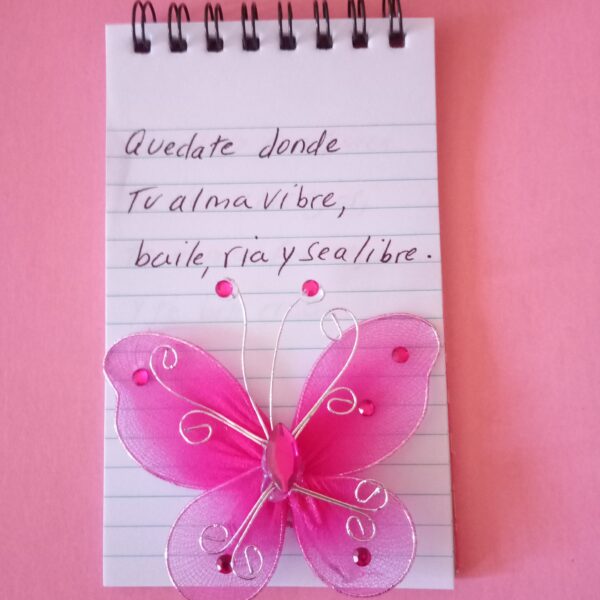 Quedate donde
Tu alma vibre,
baile, ria y sea libre.